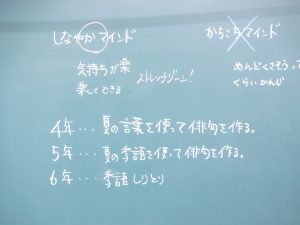 しなやかマインド
からこちマインド
気持ちが楽
楽しくできる
ストレッチゾーン!
めんどくさそうって
くらいかんじ
4年…夏の言葉を使って俳句を作る。
5年…夏の季語を使って俳句を作る。
6年…季語しりとり